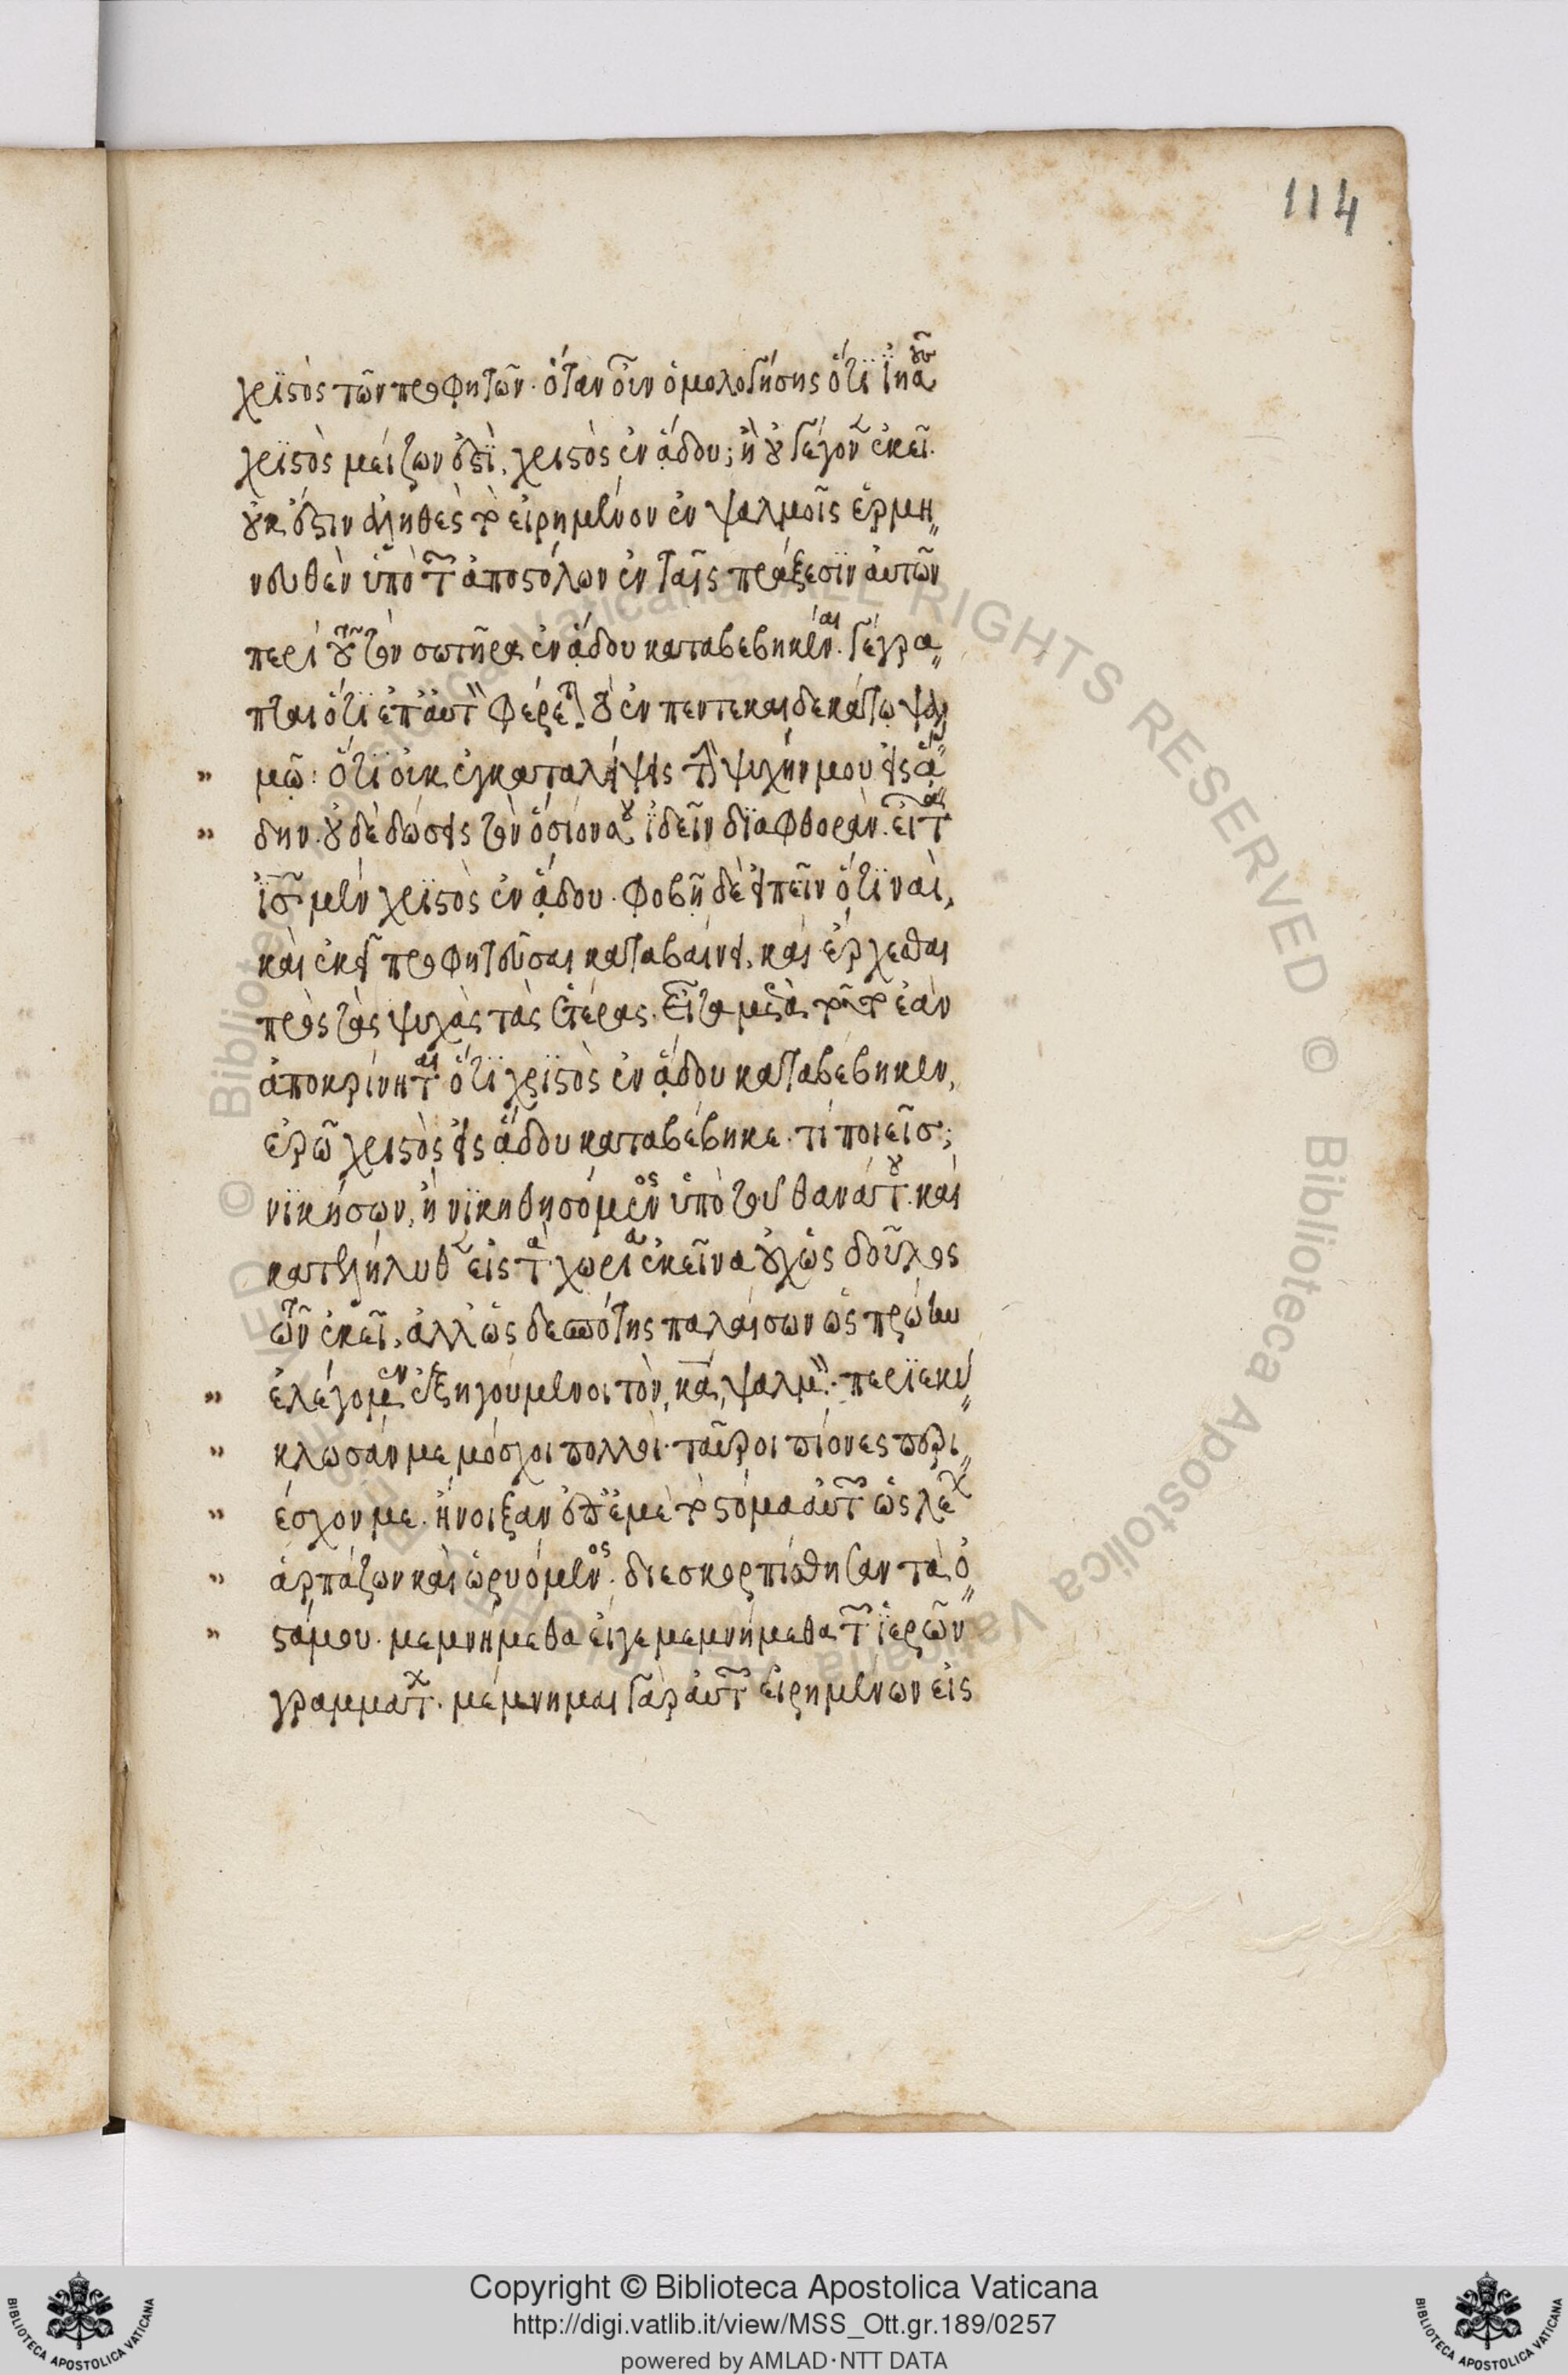 114
χριστὸς τῶν προφητῶν. ὅταν οὖν ὁμολογήσης ὅτι ἰησοῦς
χριστὸς μείζων ἐστὶ, χριστὸς ἐν ᾅδου; ἢ οὐ γέγονεν ἐκεῖ.
οὐκ ἔστιν ἀληθὲς τὸ εἰρημένον ἐν ψαλμοῖς ἑρμη
νευθὲν ὑπὸ τῶν ἀποστόλων ἐν ταῖς πράξεσιν αὐτῶν
περὶ τοῦ τὸν σωτῆρα ἐν ᾅδου καταβεβηκέναι. γέγρα
πται ὅτι ἐπ' αὐτὸν φέρεται τὸ ἐν πεντεκαιδεκάτῳ ψαλ
μῷ: ὅτι οὐκ ἐγκαταλείψεις τὴν ψυχήν μου εἰς ᾅ
δην. οὐδὲ δώσεις τὸν ὅσιόν σου ἰδεῖν διαφθοράν. εἶτα
ἰησοῦς μὲν χριστὸς ἐν ᾅδου. φοβῇ δὲ εἰπεῖν ὅτι ναὶ,
καὶ ἐκεῖ προφητεῦσαι καταβαίνει, καὶ ἔρχεσθαι
πρὸς τὰς ψυχὰς τὰς ἑτέρας. εἶτα μετὰ τοῦτο ἐὰν
ἀποκρίνηται ὅτι χριστὸς ἐν ᾅδου καταβέβηκεν,
ἐρῶ χριστὸς εἰς ᾅδου καταβέβηκε. τί ποιεῖσ;
νικήσων, ἢ νικηθησόμενος ὑπὸ τοῦ θανάτου. καὶ
κατελήλυθεν εἰς τὰ χωρία ἐκεῖνα οὐχ ὡς δοῦλος
τῶν ἐκεῖ, ἀλλ' ὡς δεσπότης παλαίσων ὡς πρώην
ἐλέγομεν ἐξηγούμενοι τὸν, κα, ψαλμόν. περιεκύ
κλωσάν με μόσχοι πολλοὶ. ταῦροι πίονες περι
έσχον με. ἤνοιξαν ἐπ' ἐμὲ τὸ στόμα αὐτῶν ὡς λέων
ἁρπάζων καὶ ὠρυόμενος. διεσκορπίσθησαν τὰ ὀ
στᾶ μου. μεμνήμεθα εἴγε μεμνήμεθα τῶν ἱερῶν
γραμμάτων. μέμνημαι γὰρ αὐτῶν εἰρημένων εἰς
Copyright © Biblioteca Apostolica Vaticana
http://digi.vatlib.it/view/MSS_Ott.gr.189/0257
powered by AMLAD·NTT DATA